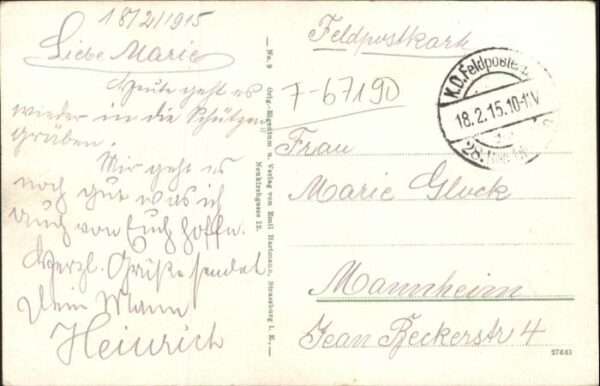 18/2/1915
Liebe Marie
Heute geht es
wieder in die Schützen
gräben.
Mir geht es
noch gut was ich
auch von Euch hoffe.
Herzl. Grüße sendet
Dein Mann
Heinrich
No. 9 Orig.-Eigentum u. Verlag von Emil Hartmann, Strassburg i. E.,
Neukirchgasse 12.
Feldpostkarte
7-67190
K.D. Feldpostexp.
18.2.15.10-11V
28.
Frau
Marie Glock
Mannheim
Jean Beckerstr 4
27643